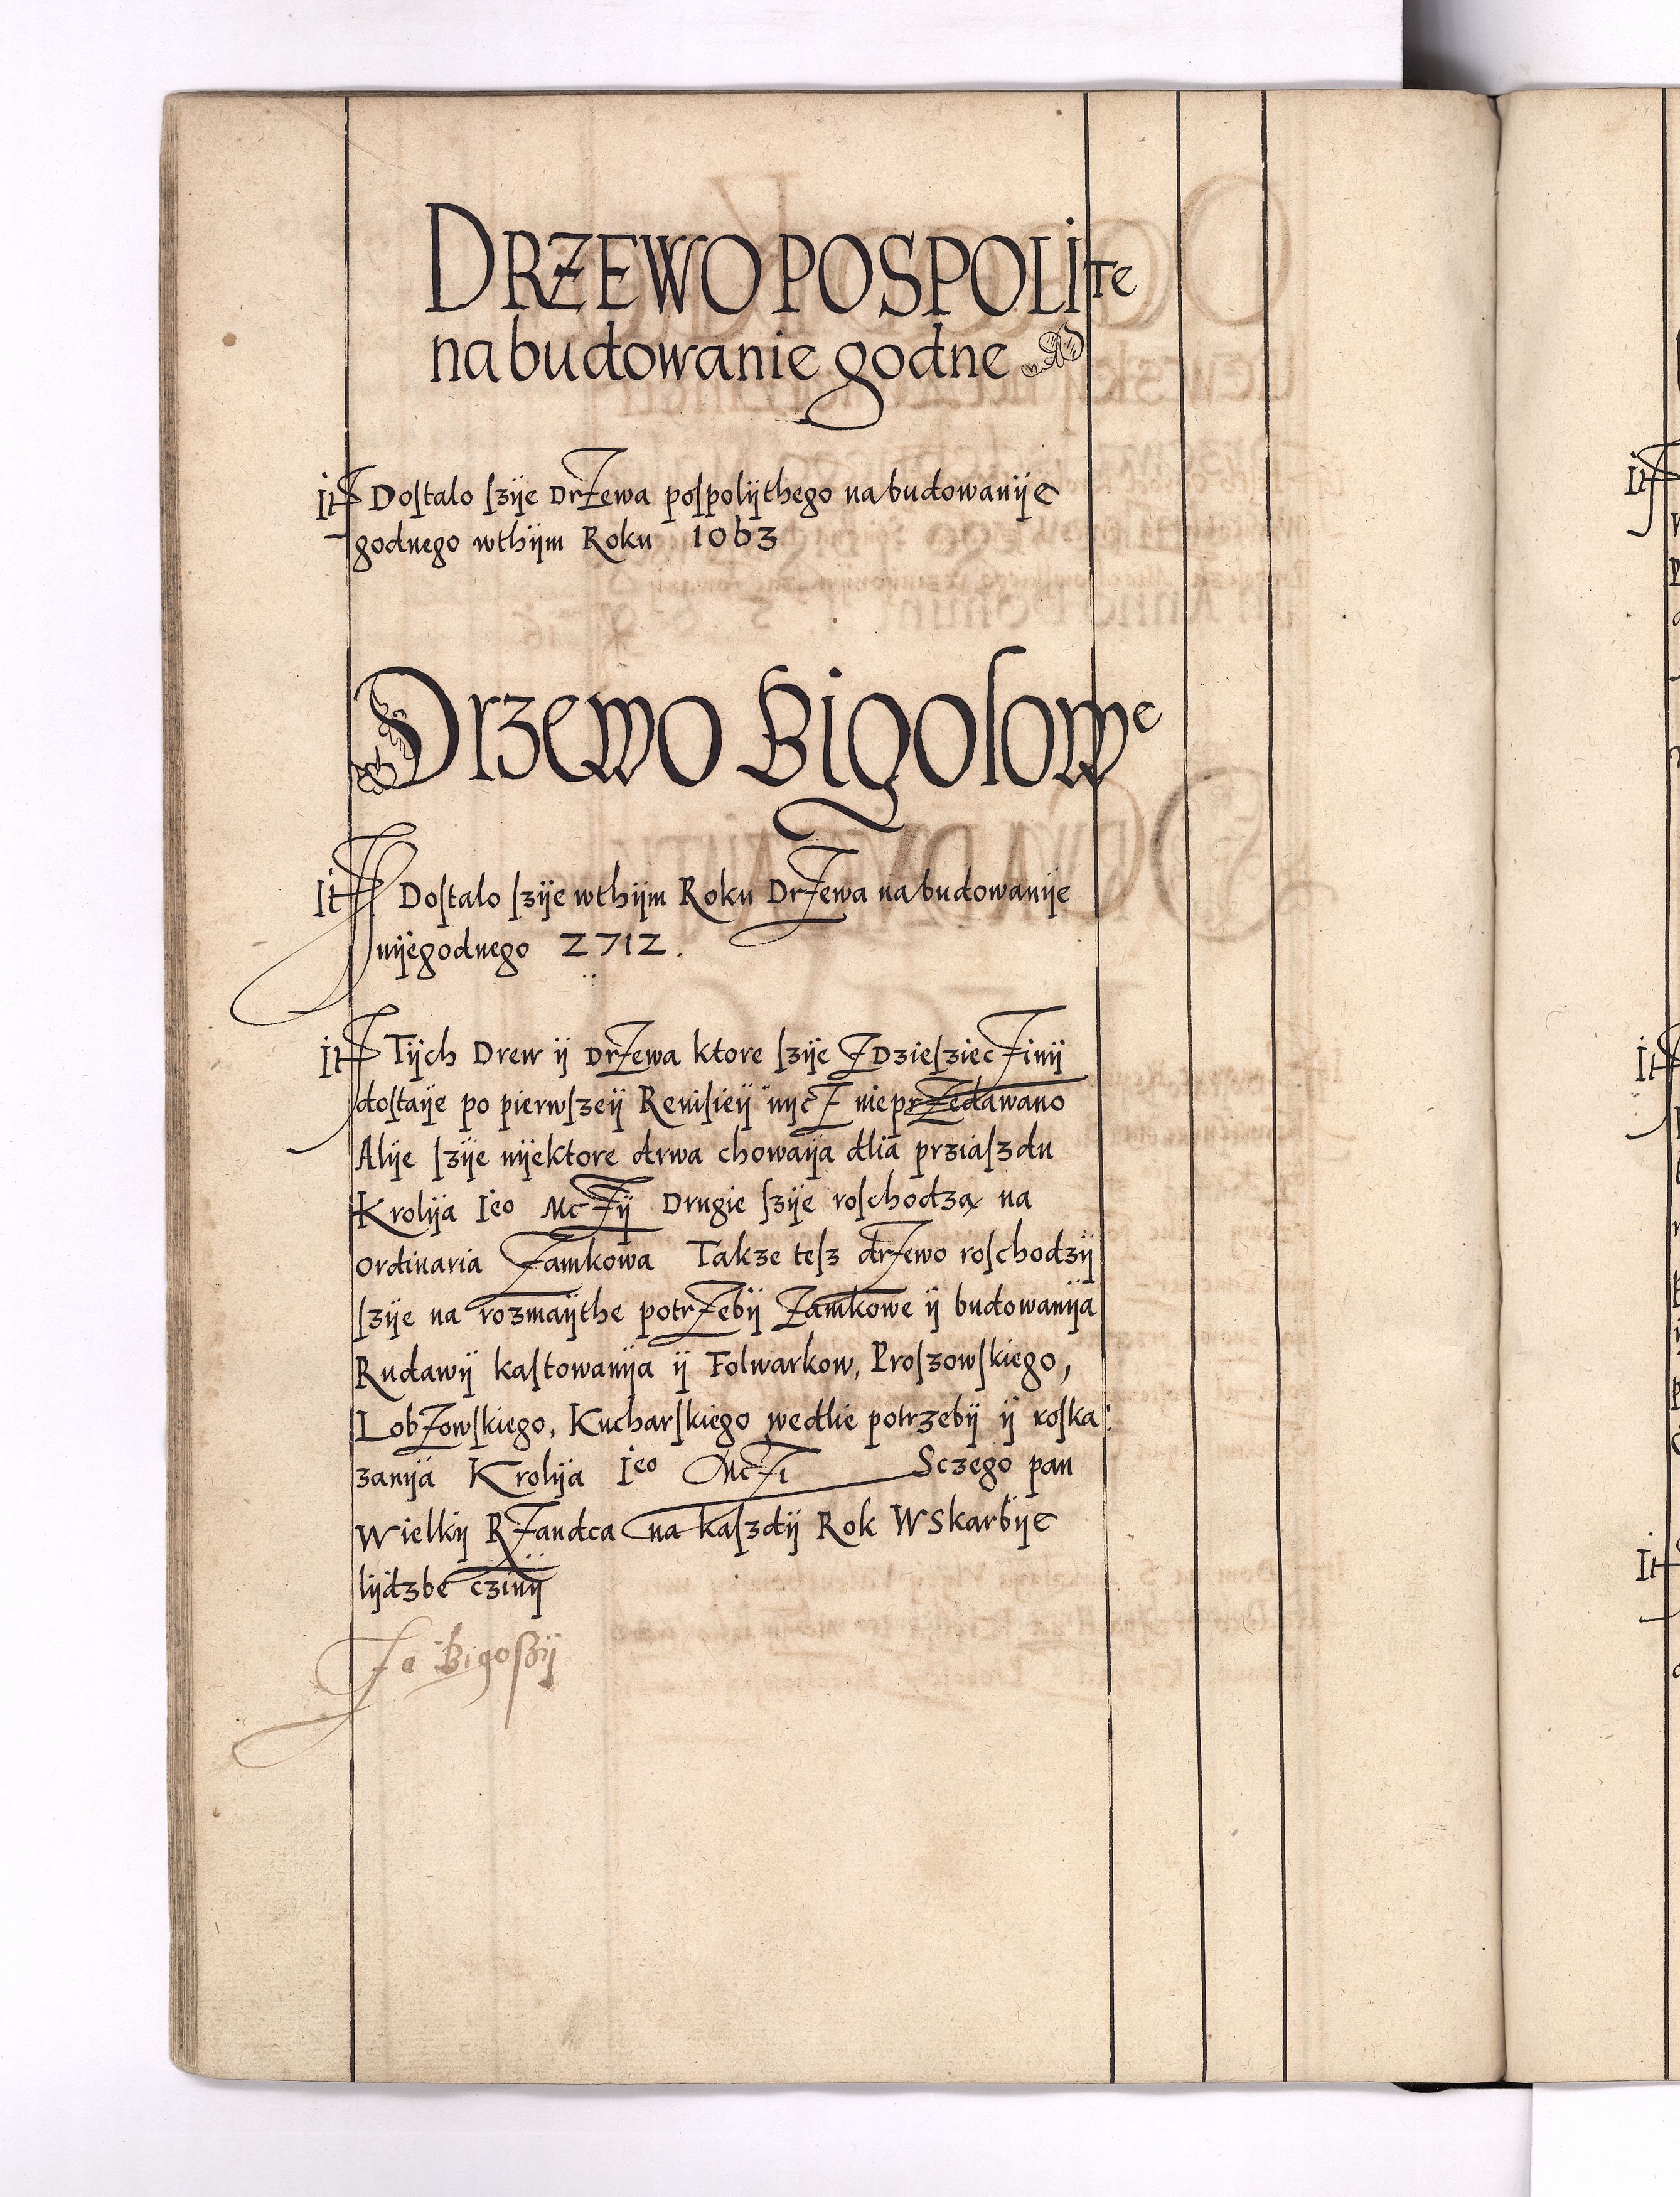 DRZEWO POSPOLITe
na budowanie godne
It Dostalo szÿe DrZewa pospolÿthego na budowanÿe
godnego wthÿm Roku 1063
Drzewo Bigolowe
It Dostalo szÿe wthÿm Roku DrZewa na budowanÿe
nÿegodnego 2712.
It Tÿch Drew ÿ DrZewa ktore szÿe ZDziesziecZinÿ
dostaÿe po pierwszeÿ Reuisieÿ nÿcZ nieprZedawano
Alÿe szÿe nÿektore drwa chowaÿa dlia prziaszdu
Krolÿa Ieo McZÿ Drugie szÿe roschodzą na
ordinaria Zamkowa Takze tesz drZewo roschodzÿ
szÿe na rozmaÿthe potrZebÿ Zamkowe ÿ budowanÿa
Rudawÿ kastowanÿa ÿ Folwarkow, Proszowskiego,
LobZowskiego, Kucharskiego wedlie potrzebÿ ÿ roska:
zanÿa Krolÿa Ieo McZi Sczego pan
Wielkÿ RZandca na kaszdÿ Rok WSkarbÿe
lÿdzbe czinÿ